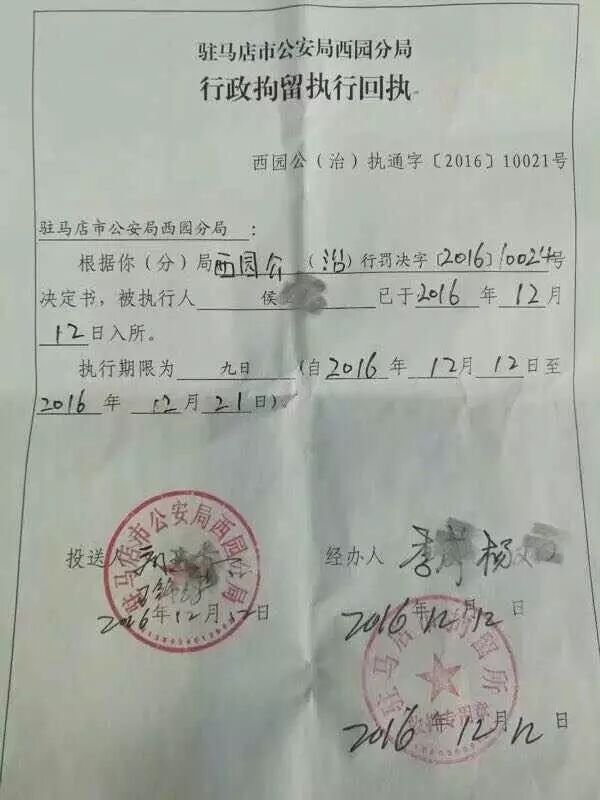 驻马店市公安局西园分局
行政拘留执行回执
西园公（治）执通字〔2016〕10021号
驻马店市公安局西园分局：
根据你（分）局西园公（治）行罚决字〔2016〕10024号
决定书，被执行人 侯 已于2016年12月
12日入所。
执行期限为 九日 （自2016年12月12日至
2016年12月21日）。
驻马店市公安局西园分局
投送人
2016年12月12日
经办人 李 杨
2016年12月12日
驻马店 拘留所
2016年12月12日